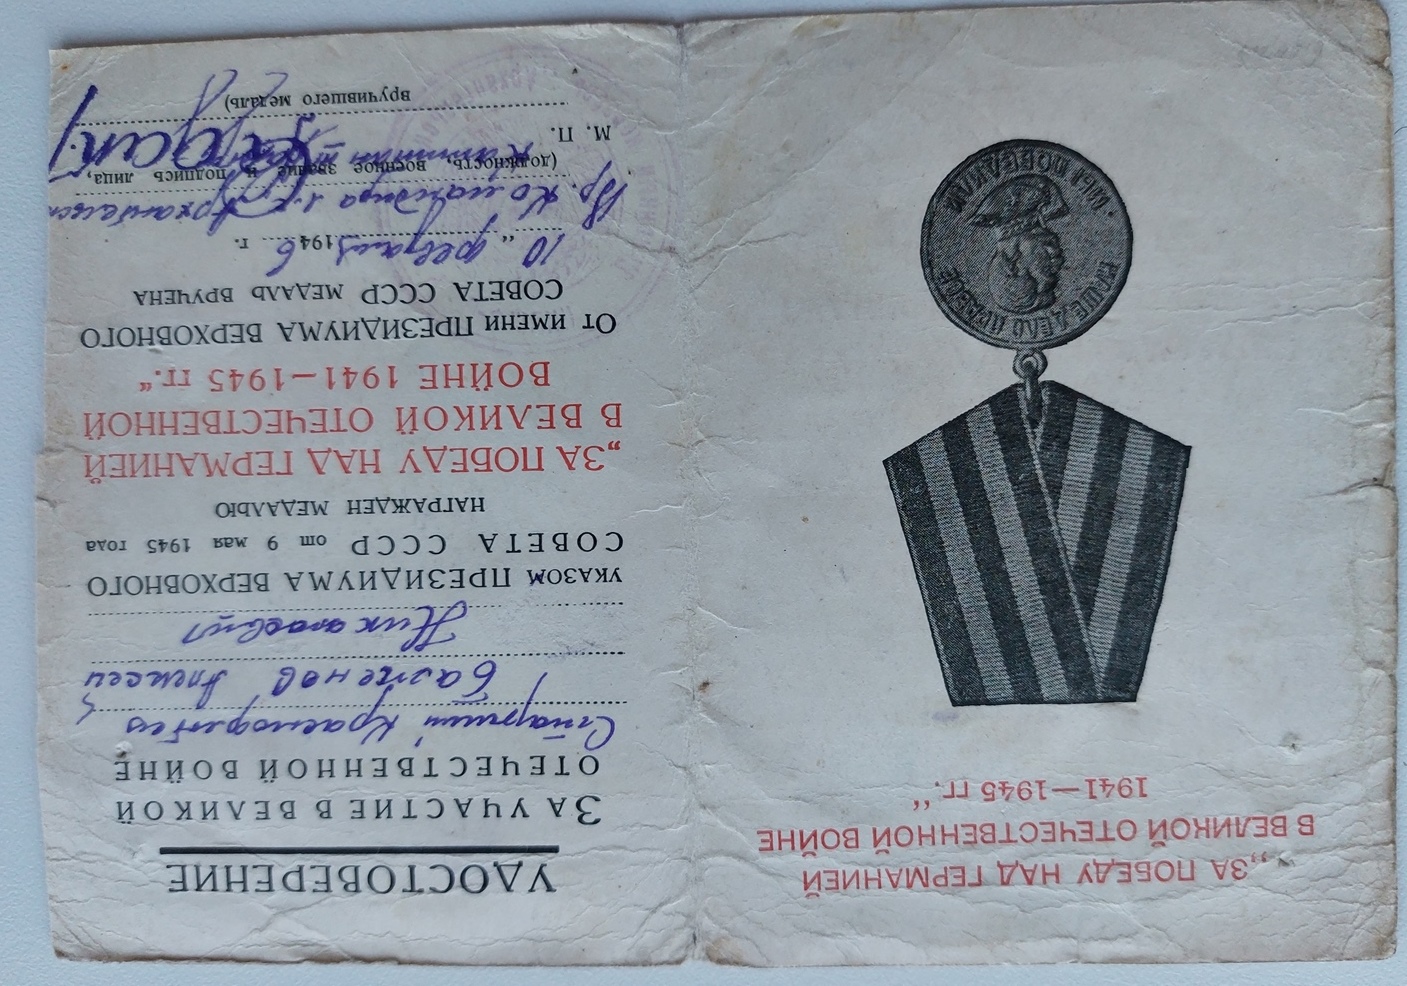 „ЗА ПОБЕДУ НАД ГЕРМАНИЕЙ
В ВЕЛИКОЙ ОТЕЧЕСТВЕННОЙ ВОЙНЕ
1941—1945 гг.“
НАШЕ ДЕЛО ПРАВОЕ
МЫ ПОБЕДИЛИ
УДОСТОВЕРЕНИЕ
ЗА УЧАСТИЕ В ВЕЛИКОЙ
ОТЕЧЕСТВЕННОЙ ВОЙНЕ
Старший Краснофлотец
Баженов Алексей
Николаевич
УКАЗОМ ПРЕЗИДИУМА ВЕРХОВНОГО
СОВЕТА СССР от 9 мая 1945 года
НАГРАЖДЕН МЕДАЛЬЮ
„ЗА ПОБЕДУ НАД ГЕРМАНИЕЙ
В ВЕЛИКОЙ ОТЕЧЕСТВЕННОЙ
ВОЙНЕ 1941—1945 гг.“
ОТ ИМЕНИ ПРЕЗИДИУМА ВЕРХОВНОГО
СОВЕТА СССР МЕДАЛЬ ВРУЧЕНА
10 „ февраля 1946 г.
Вр. Командира
(должность, военное звание и подпись лица,
М. П. Капитан
вручившего медаль)